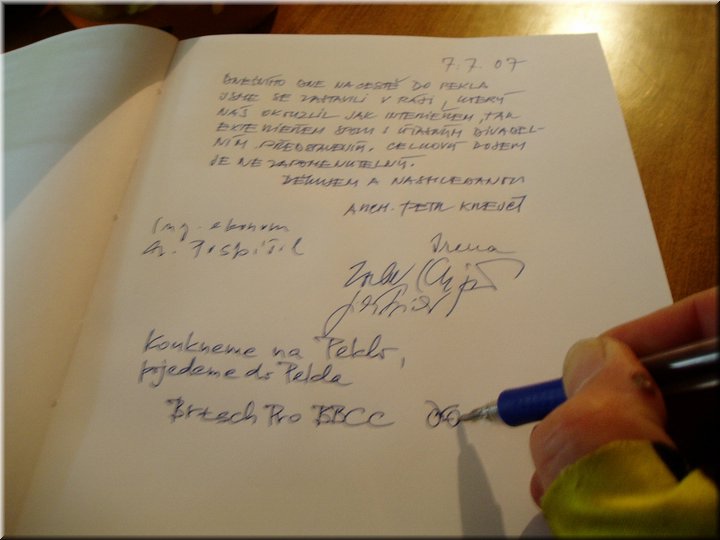 7.7.07
DNEŠNÍHO DNE NA CESTĚ DO PEKLA
JSME SE ZASTAVILI V RÁJI, KTERÝ
NÁS OKOUZLIL JAK INTERIÉREM, TAK
EXTERIÉREM SPOLU S ÚŽASNÝM DIVADEL-
NÍM PŘEDSTAVENÍM. CELKOVÝ DOJEM
JE NEZAPOMENUTELNÝ.
DĚKUJEM A NASHLEDANOU
ARCH. PETR
Ing. ekonom
Pospíšil
Irena
Koukneme na Peklo,
pojedeme do Pekla
Brzech Pro BBCC